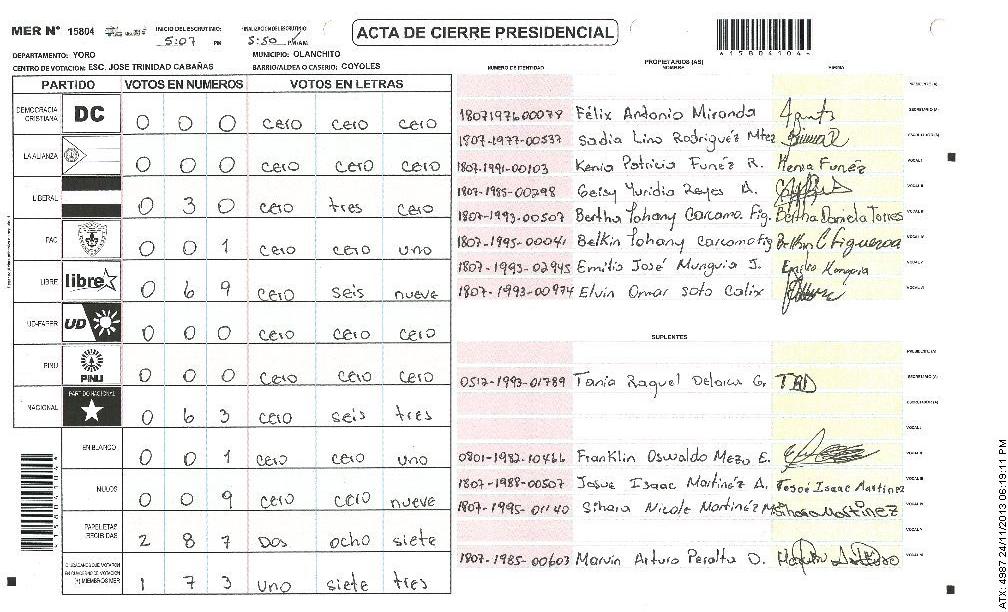 MER Nº 15804 INICIO DEL ESCRUTINIO: 5:07 PM FINALIZACION DEL ESCRUTINIO 5:50 PM/AM.
ACTA DE CIERRE PRESIDENCIAL
DEPARTAMENTO: YORO MUNICIPIO: OLANCHITO
CENTRO DE VOTACION: ESC. JOSE TRINIDAD CABAÑAS BARRIO/ALDEA O CASERIO: COYOLES
PARTIDO VOTOS EN NUMEROS VOTOS EN LETRAS
DEMOCRACIA CRISTIANA DC 0 0 0 cero cero cero
LA ALIANZA 0 0 0 cero cero cero
LIBERAL 0 3 0 cero tres cero
PAC 0 0 1 cero cero uno
LIBRE libre 0 6 9 cero seis nueve
UD-FAPER UD 0 0 0 cero cero cero
PINU PINU 0 0 0 cero cero cero
NACIONAL PARTIDO NACIONAL 0 6 3 cero seis tres
EN BLANCO 0 0 1 cero cero uno
NULOS 0 0 9 cero cero nueve
PAPELETAS RECIBIDAS 2 8 7 Dos ocho siete
CIUDADANOS QUE VOTARON EN CUADERNO DE VOTACION (+) MIEMBROS MER 1 7 3 uno siete tres
NUMERO DE IDENTIDAD PROPIETARIOS (AS) NOMBRE FIRMA
PRESIDENTE (A)
180719760 0079 Félix Antonio Miranda SECRETARIO (A)
1807-1977-00537 Sadia Lino Rodriguéz Mtez ESCRUTADOR (A)
1807-1991-00103 Kenia Patricia Funéz R. Kenia Funéz VOCAL I
1807-1985-00298 Geisy Yuridia Reyes A. VOCAL II
1807-1993-00507 Bertha Yohany Carcamo. Fig. Bertha Daniela Torres
1807-1995-00041 Belkin Yohany Carcamo Fig Belkin C Figueroa
1807-1993-02945 Emilio José Munguia J. Emilio Munguia
1807-1993-00974 Elvin Omar Soto Calix
SUPLENTES
PRESIDENTE (A)
0512-1993-01789 Tania Raquel G. SECRETARIO (A)
ESCRUTADOR (A)
VOCAL I
0801-1982-10466 Franklin Oswaldo Meza E. VOCAL II
1807-1988-00507 Josue Isaac Martinéz A. Josué Isaac Martinez
1807-1995-01140 Sihara Nicole Martinéz M Sihara Martinez
1807-1985-00603 Marvin Arturo Peralta O.
ATX: 4987 24/11/2013 06:19:11 PM